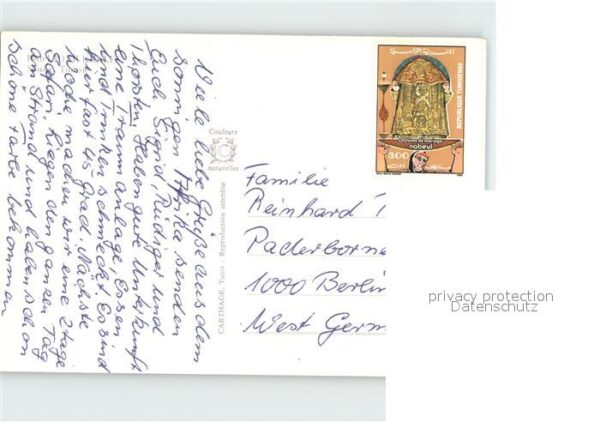 Viele liebe Grüße aus dem
sonnigen Afrika senden
Euch Sigrid, Rüdiger und
Thorsten. Haben gute Unterkunft
eine Traumanlage, Essen
und Trinken schmeckt. Es sind
hier fast 45 grad. Nächste
Woche machen wir eine 2 tage
Safari, liegen den ganzen Tag
am Strand und haben schon
schöne Farbe bekommen
Couleurs
C
naturelles
CARTHAGE, Tunis - Reproduction interdite
REPUBLIQUE TUNISIENNE
costume de mariage
nabeul
300
Familie
Reinhard
Paderborne
1000 Berlin
West Germ
privacy protection
Datenschutz